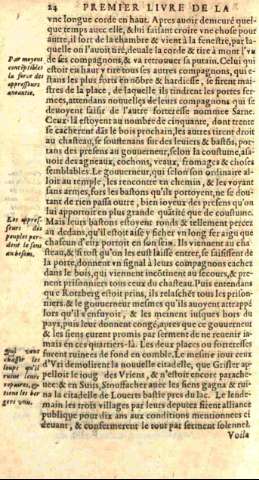 24 PREMIER LIVRE DE LA
vne longue corde en haut. Apres auoir demeuré quel-
que temps auec elle, & lui faisant croire vne chose pour
autre, il sort de la chambre & vient à la fenestre, par la-
quelle on l'auoit tiré, deuale la corde & tire à mont l'vn
Par moyens
de ses compagnons, & va retrouuer sa putain. Celui qui
estoit en haut y tire tous les autres compagnons, qui e-
la force des
stans les plus forts en nõbre & hardiesse, se firent mai-
oppresseurs
stres de la place, de laquelle ils tindrent les portes fer-
aneantie.
mees, attendans nouuelles de leurs compagnons qui se
deuoyent saisir de l'autre forteresse nommee Sarne.
Ceux-là estoyent au nombre de cinquante, dont trente
se cacherent dãs le bois prochain, les autres tirent droit
au chasteau, se soustenans sur des leuiers & bastõs, por-
tans des presens au gouuerneur, selon la coustume, as-
uoir des agneaux, cochons, veaux, fromages & choses
semblables. Le gouuerneur, qui selon son ordinaire al-
loit au temple, les rencontre en chemin, & les voyant
sans armes, fors les bastons qu'ils portoyent, ne se dou-
tant de rien passa outre, bien ioyeux des presens qu'on
lui apportoit en plus grande quãtité que de coustume.
Les oppres-
Mais leurs bastons estoyent ronds & tellement percez
seurs des
au dedans, qu'il estoit aisé y ficher vn long fer aigu que
peuples per-
chacun d'eux portoit en son sein. Ils viennent au cha-
dent le sens
steau, & si tost qu'on les eust laissé entrer, se saisissent de
au besoin.
la porte, donnent vn signal à leurs compagnons cachez
dans le bois, qui viennent incõtinent au secours, & pre-
nent prisonniers tous ceux du chasteau. Puis entendans
que Rotzberg estoit prins, ils relaschét tous les prison-
niers, & le gouuerneur mesmes qu'ils auoyent attrappé
lors qu'il s'enfuyoit, & les meinent iusques hors du
pays, puis leur donnent congé, apres que ce gouuerneur
& les siens eurent promis par serment de ne reuenir ia-
mais en ces quartiers-là. Les deux places ou forteresses
Qui veut
furent ruinees de fond en comble. Le mesme iour ceux
chasser les
d'Vri demolirent la nouuelle citadelle, que Grisler ap-
loups qu'il
pelloit le ioug des Vriens, & n'estoit encore parache-
ruine leurs
uee: & en Suits, Stouffacher auec les siens gagna & rui-
repaires,
na la citadelle de Louerts bastie pres du lac. Le lende-
main les trois villages par leurs deputez firent alliance
publique pour dix ans aux conditions mentionnees ci
deuant, & confermerent le tout par serment solennel.
Voila